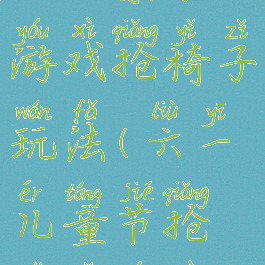 yóu xì qiǎng yǐ zǐ
游戏抢椅子
wán fǎ liù yī
玩法(六一
ér tóng jié qiǎng
儿童节抢